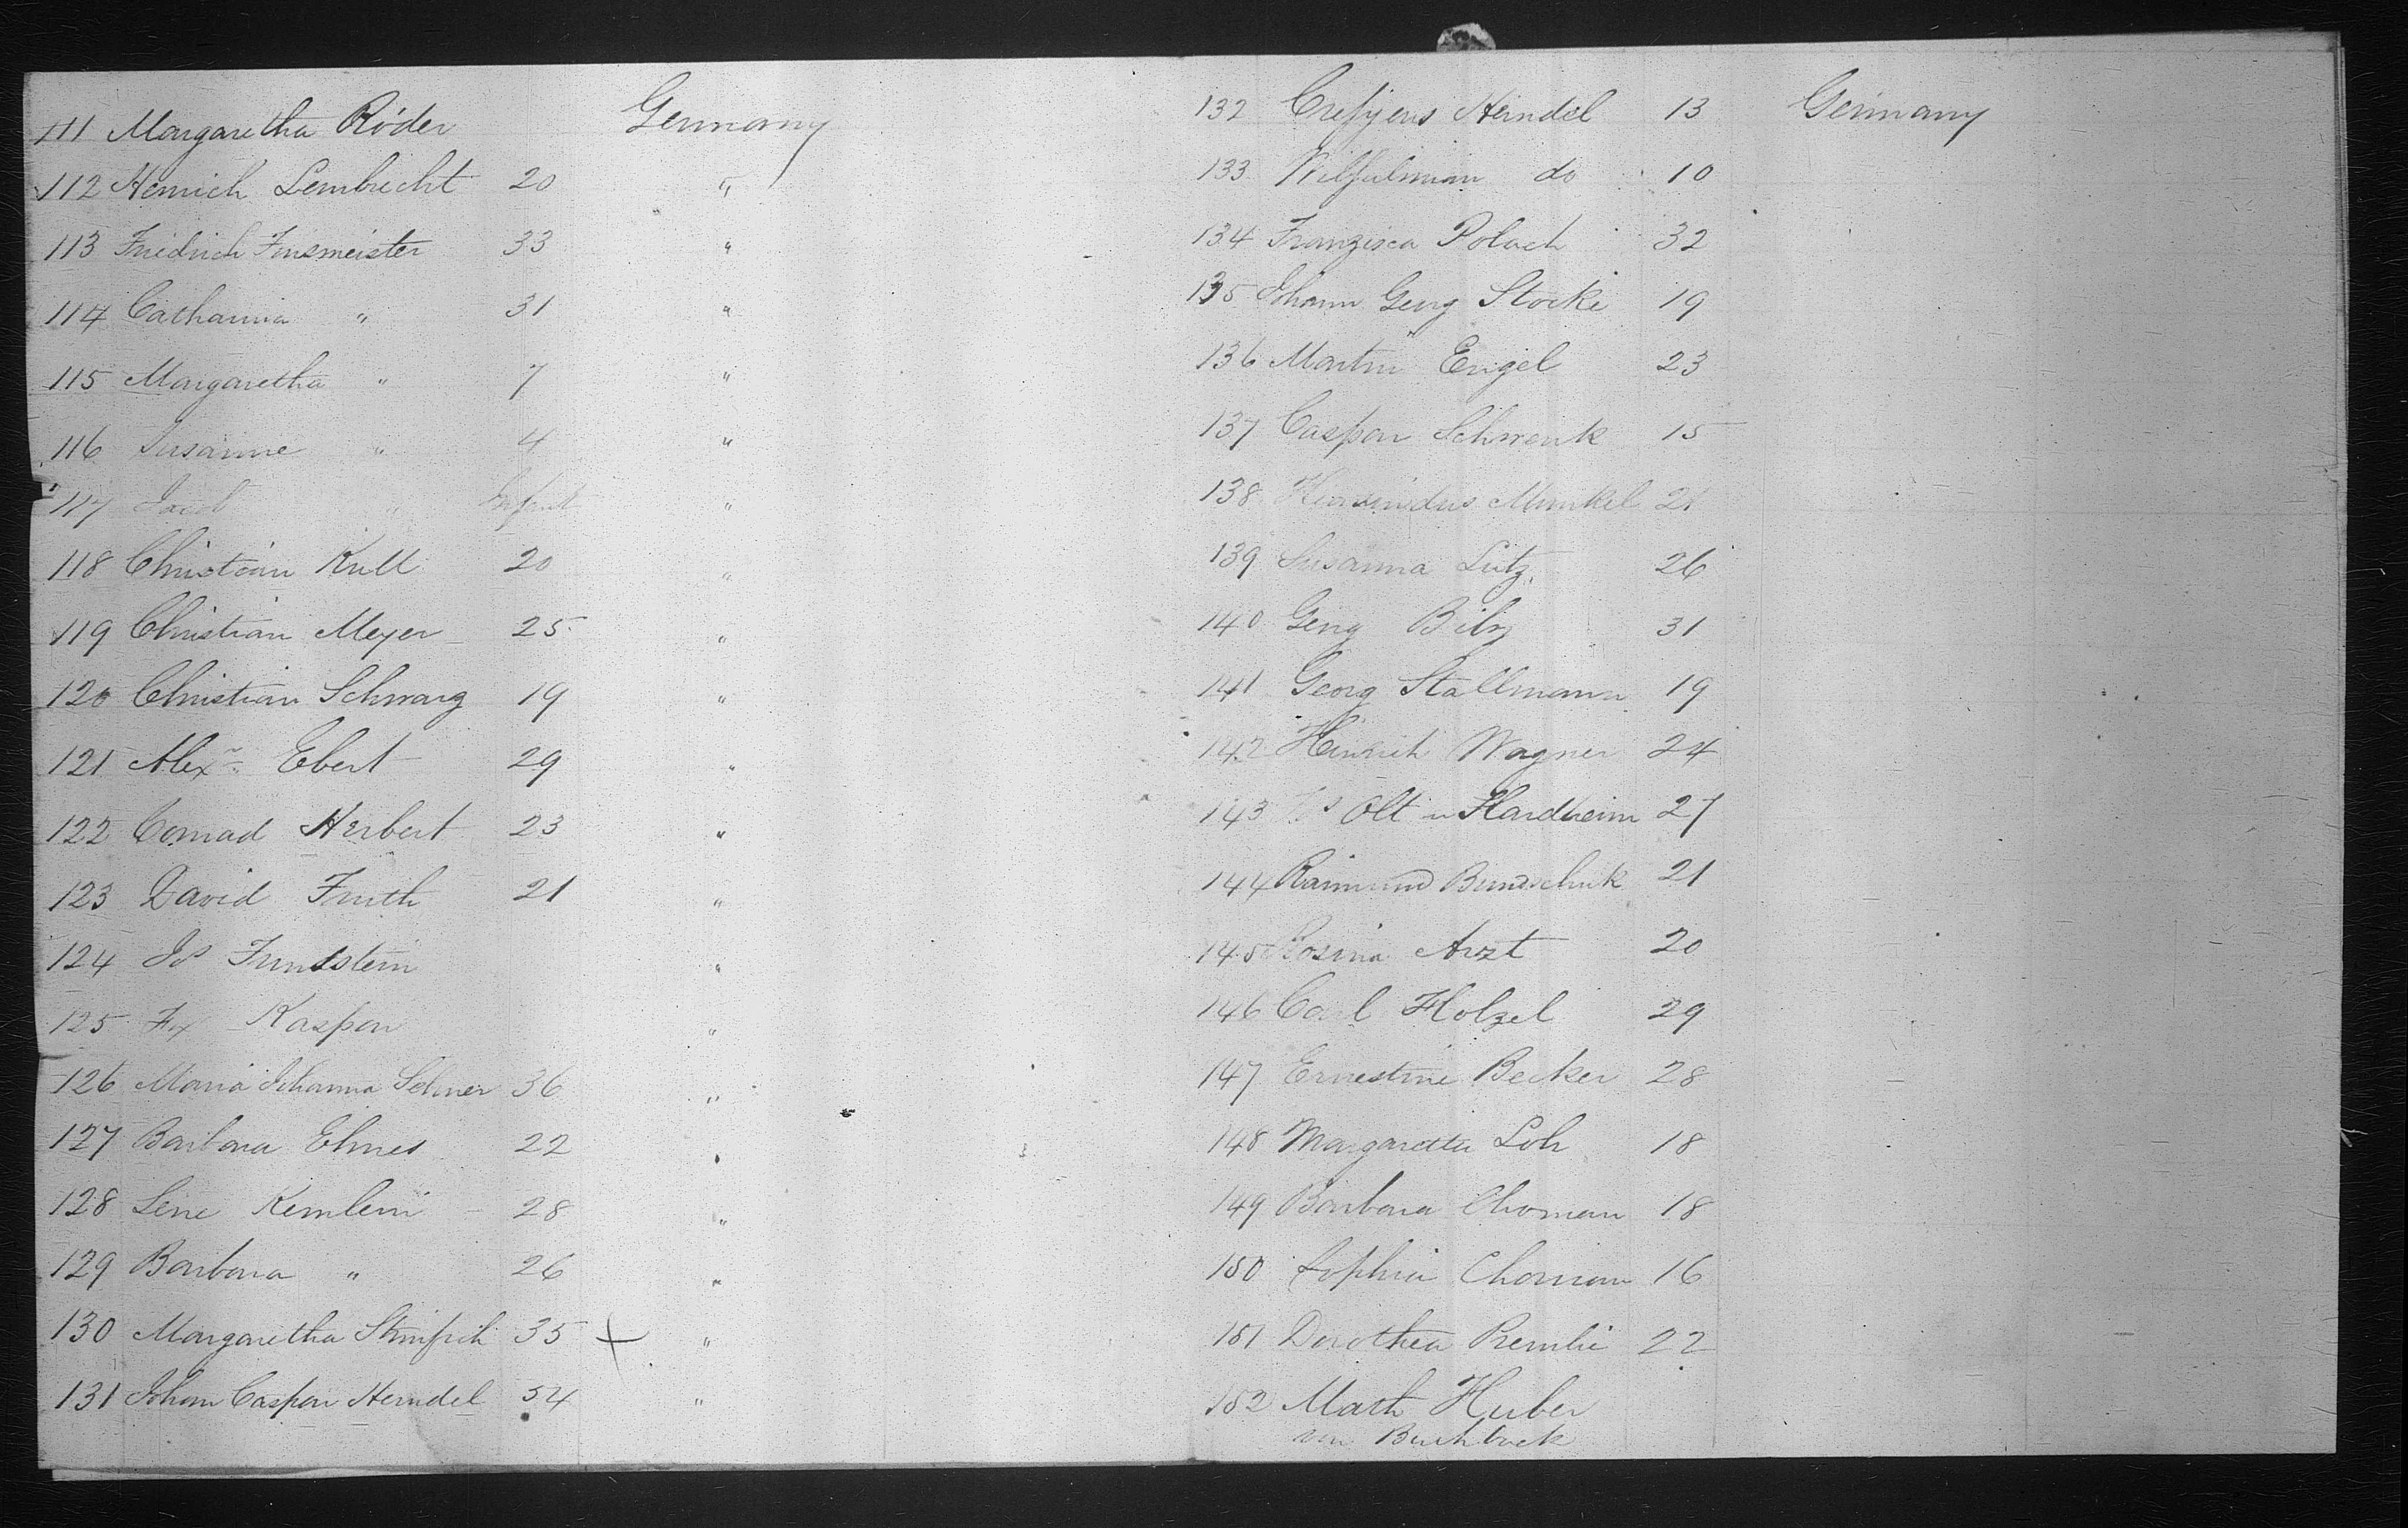 111 Margaretha Röder Germany
112 Heinrich Lembrecht 20 "
113 Friedrich Finsmeister 33 "
114 Catharina " 31 "
115 Margaretha " 7 "
116 Susanne " 4 "
117 Jacob " Infant "
118 Christian Kull 20 "
119 Christian Meyer 25 "
120 Christian Schwarz 19 "
121 Alexr Ebert 29 "
122 Conrad Herbert 23 "
123 David Fruth 21 "
124 Js "
125 Fx Kaspar "
126 Maria Johanna 36 "
127 Barbara Ehnes 22 "
128 Lene Kemlein 28 "
129 Barbara " 26 "
130 Margaretha 35 + "
131 Johann Caspar Herndel 54 "
132 Herndel 13 Germany
133 do 10
134 Franzisca Polach 32
135 Johann Georg Stocke 19
136 Martin Engel 23
137 Caspar Schwenk 15
138 Munkel 21
139 Susanna Lutz 26
140 Georg 31
141 Georg Stallmann 19
142 Heinrich Wagner 24
143 Olt v Hardheim 27
144 Raimund Bundschuk 21
145 Rosina Arzt 20
146 Carl Holzel 29
147 Ernestine Becker 28
148 Margaretta Loh 18
149 Barbara Choman 18
150 Sophia Choman 16
151 Dorothea 22
152 Math Huber
von Buchback